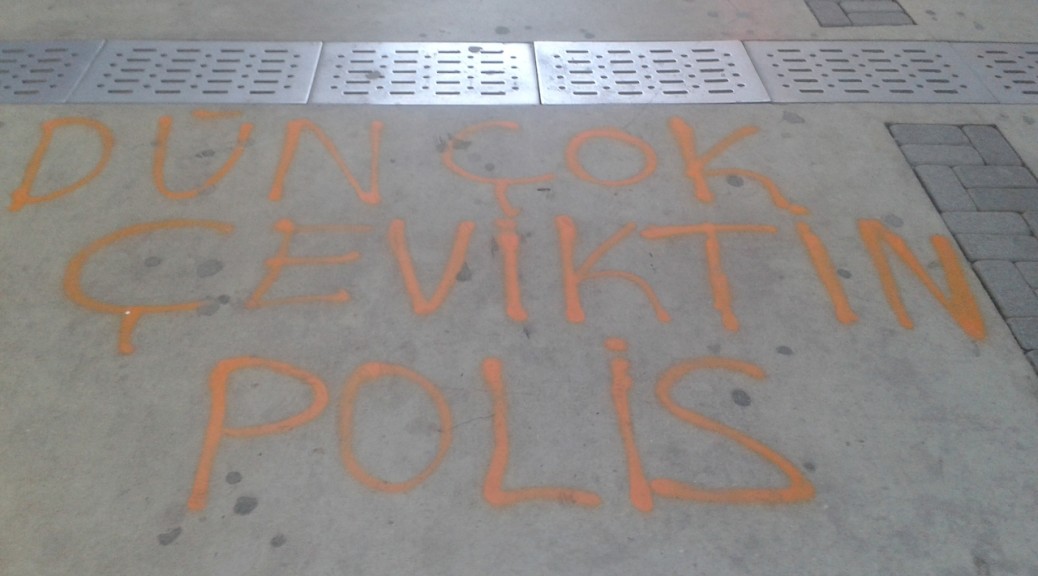 DÜN ÇOK
ÇEVİKTİN
POLİS